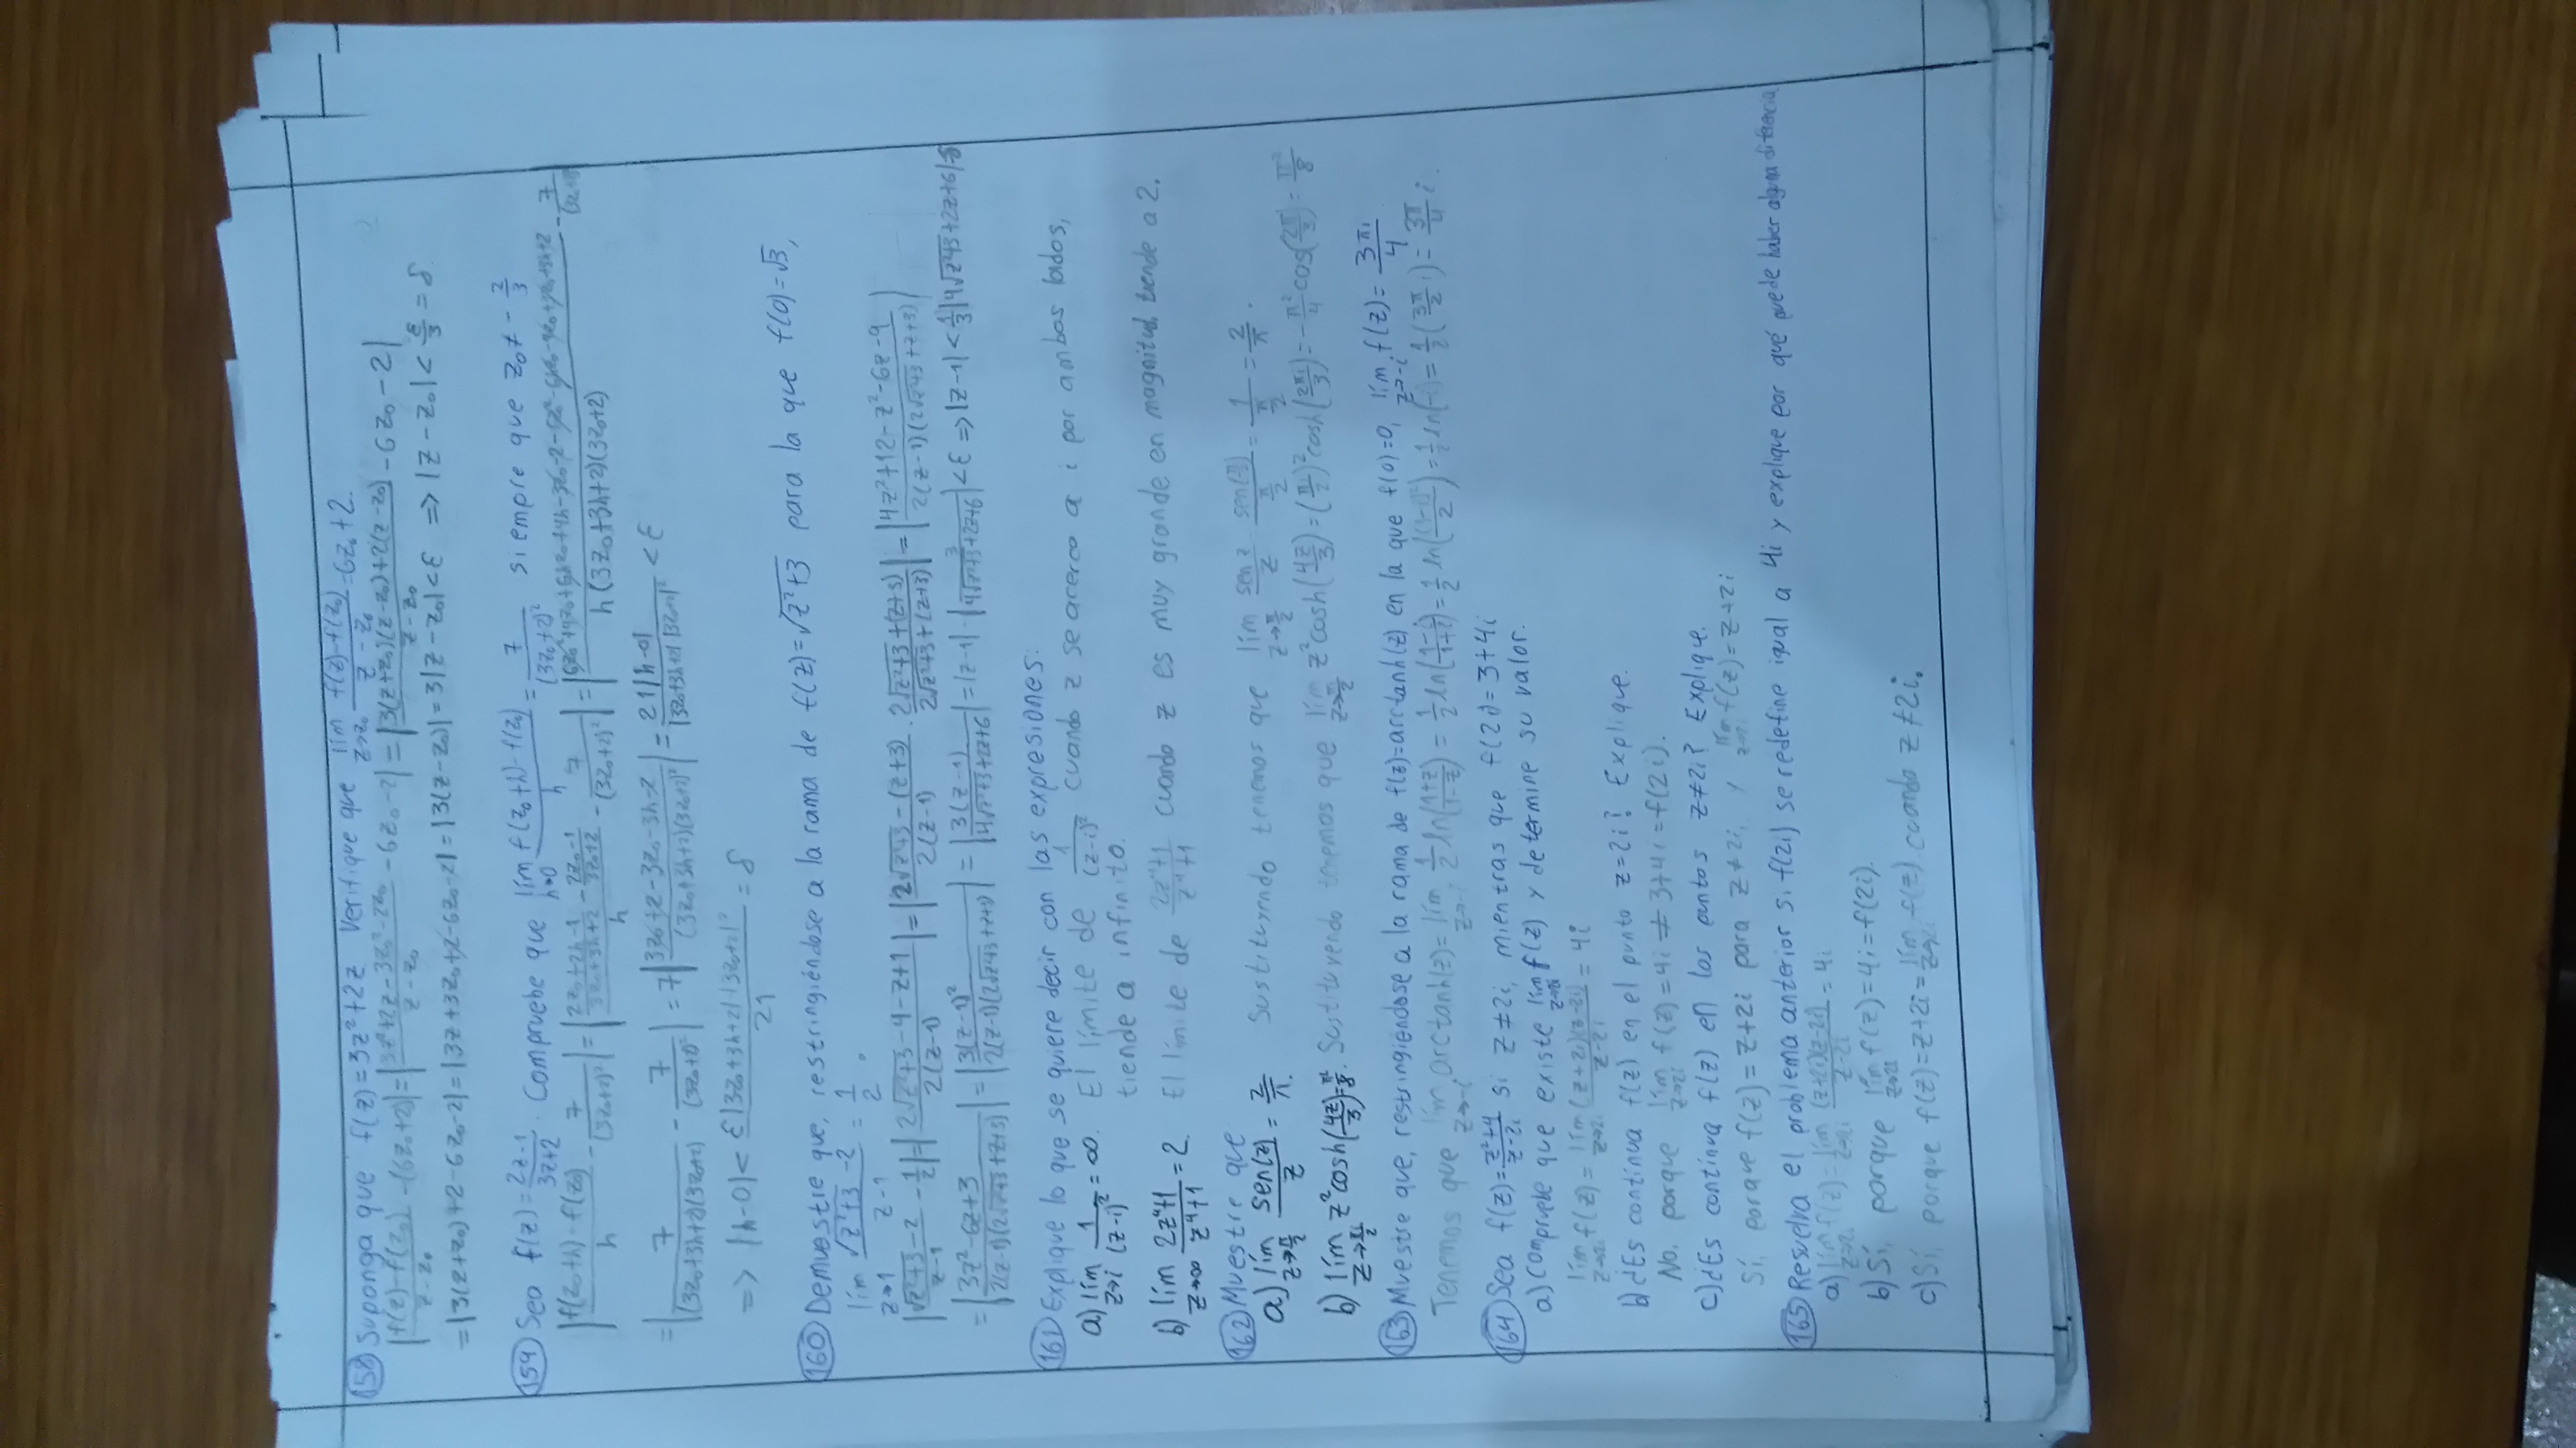 158 Suponga que f(z)=3z²+2z. Verifique que lím z→z₀ (f(z)-f(z₀))/(z-z₀) =6z₀+2.
|(f(z)-f(z₀))/(z-z₀) -(6z₀+2)|=|(3z²+2z-3z₀²-2z₀)/(z-z₀) -6z₀-2|=|(3(z+z₀)(z-z₀)+2(z-z₀))/(z-z₀) -6z₀-2|
=|3(z+z₀)+2-6z₀-2|=|3z+3z₀+2-6z₀-2|=|3(z-z₀)|=3|z-z₀|<ε ⇒ |z-z₀|<ε/3=δ
159 Sea f(z)=(2z-1)/(3z+2). Compruebe que lím h→0 (f(z₀+h)-f(z₀))/h = 7/(3z₀+2)² siempre que z₀≠-2/3
|(f(z₀+h)-f(z₀))/h - 7/(3z₀+2)²|=|((2z₀+2h-1)/(3z₀+3h+2) - (2z₀-1)/(3z₀+2))/h - 7/(3z₀+2)²|=
=|7/((3z₀+3h+2)(3z₀+2)) - 7/(3z₀+2)²|=7|(3z₀+2-3z₀-3h-2)/((3z₀+3h+2)(3z₀+2)²)|=21|h-0|/(|3z₀+3h+2| |3z₀+2|²) <ε
⇒ |h-0|< ε|3z₀+3h+2| |3z₀+2|²/21 =δ
160 Demuestre que, restringiéndose a la rama de f(z)=√(z²+3) para la que f(0)=√3,
lím z→1 (√(z²+3)-2)/(z-1) = 1/2.
|(√(z²+3)-2)/(z-1) - 1/2|=|(2√(z²+3)-4-z+1)/(2(z-1))|=|(2√(z²+3)-(z+3))/(2(z-1)) · (2√(z²+3)+(z+3))/(2√(z²+3)+(z+3))|=|(4z²+12-z²-6z-9)/(2(z-1)(2√(z²+3)+z+3))|
=|(3z²-6z+3)/(2(z-1)(2√(z²+3)+z+3))|=|3(z-1)²/(2(z-1)(2√(z²+3)+z+3))|=|3(z-1)/(4√(z²+3)+2z+6)|=|z-1|·|3/(4√(z²+3)+2z+6)|<ε ⇒|z-1|<1/3|4√(z²+3)+2z+6|
161 Explique lo que se quiere decir con las expresiones:
a) lím z→i 1/(z-i)² =∞. El límite de 1/(z-i)² cuando z se acerca a i por ambos lados,
tiende a infinito.
b) lím z→∞ (2z⁴+1)/(z⁴+1) =2. El límite de (2z⁴+1)/(z⁴+1) cuando z es muy grande en magnitud, tiende a 2.
162 Muestre que
a) lím z→π/2 sen(z)/z = 2/π. Sustituyendo tenemos que lím z→π/2 sen z/z sen(π/2)/(π/2) = 1/(π/2) = 2/π.
b) lím z→πi/2 z²cosh(4z/3)=π²/8. Sustituyendo tenemos que lím z→πi/2 z²cosh(4z/3)=(πi/2)²cosh(2πi/3)=-π²/4 cos(2π/3)=π²/8
163 Muestre que, restringiéndose a la rama de f(z)=arctanh(z) en la que f(0)=0, lím z→-i f(z)=3πi/4
Tenemos que lím z→-i arctanh(z)=lím z→-i 1/2 ln((1+z)/(1-z))=1/2 ln((1-i)/(1+i))=1/2 ln((1-i)²/2)=1/2 ln(-i)=1/2(3π/2 i)=3π/4 i.
164 Sea f(z)=(z²+4)/(z-2i) si z≠2i, mientras que f(2i)=3+4i
a) Compruebe que existe lím z→2i f(z) y determine su valor.
lím z→2i f(z)=lím z→2i (z+2i)(z-2i)/(z-2i) =4i
b) ¿Es continua f(z) en el punto z=2i? Explique.
No, porque lím z→2i f(z)=4i≠3+4i=f(2i).
c) ¿Es continua f(z) en los puntos z≠2i? Explique.
Sí, porque f(z)=z+2i para z≠2i, y lím z→2i f(z)=z+2i
165 Resuelva el problema anterior si f(2i) se redefine igual a 4i y explique por qué puede haber alguna diferencia.
a) lím z→2i f(z)=lím z→2i (z+2i)(z-2i)/(z-2i) =4i
b) Sí, porque lím z→2i f(z)=4i=f(2i).
c) Sí, porque f(z)=z+2i=lím z→2i f(z) cuando z≠2i.